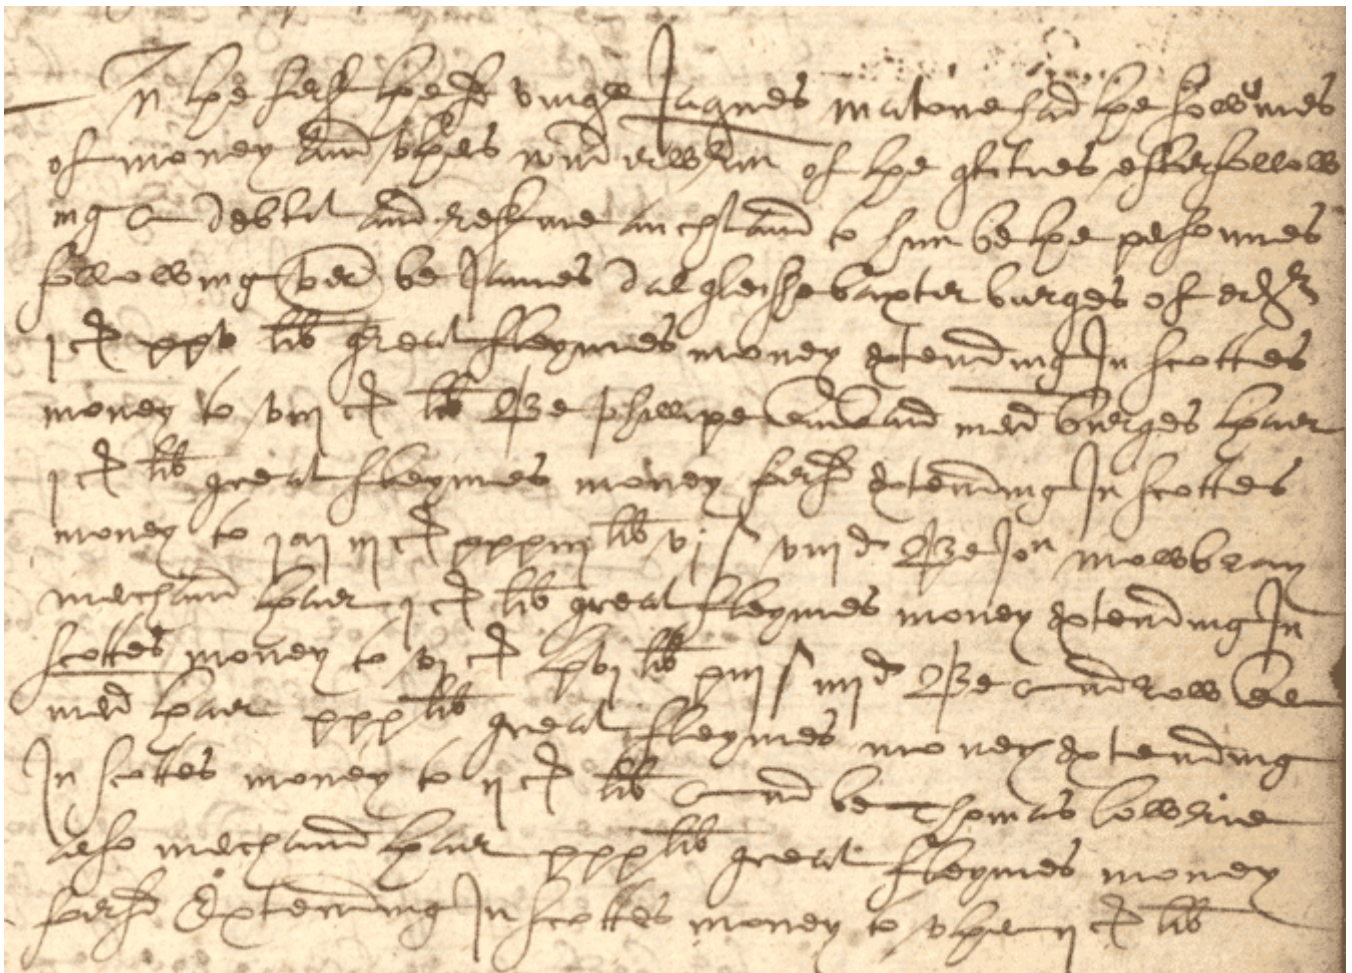 In the first the said umq^ll Jaques matone had the sowmes
of money and utheris underwrittin of the quhilkis efterfollow
ing as debtit and restand auchtand to him be the persounes
following viz be James dalgleishe baxter burges of ed^r
j^c xxv lib great fleymes money extending In scottes
money to viij^c lib Ite be phillipe and merd burges thair
j^c lib great fleymes money extending In scottes
money to iij^c xxxiij lib vj s viij d Ite be Jo^n mowbray
merchand thair j^c lib great fleymes money extending In
scottes money to vj^c lxvj lib xiij s iiij d Ite be Andrew
merd thair xxx lib great fleymes money extending
In scottes money to ij^c lib And be Thomas lowrie
also merchand thair xxx lib great fleymes money
extending In scottes money to uther ij^c lib